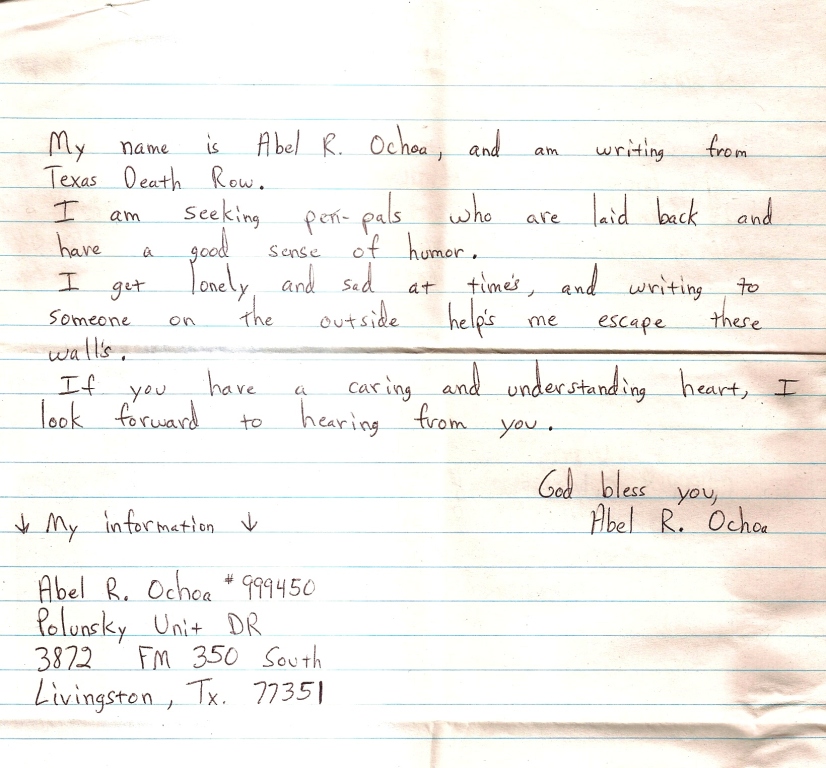 My name is Abel R. Ochoa, and am writing from
Texas Death Row.
I am seeking pen-pals who are laid back and
have a good sense of humor.
I get lonely and sad at time's, and writing to
someone on the outside help's me escape these
wall's.
If you have a caring and understanding heart, I
look forward to hearing from you.
God bless you,
Abel R. Ochoa
↓ My information ↓
Abel R. Ochoa #999450
Polunsky Unit DR
3872 FM 350 South
Livingston, Tx. 77351